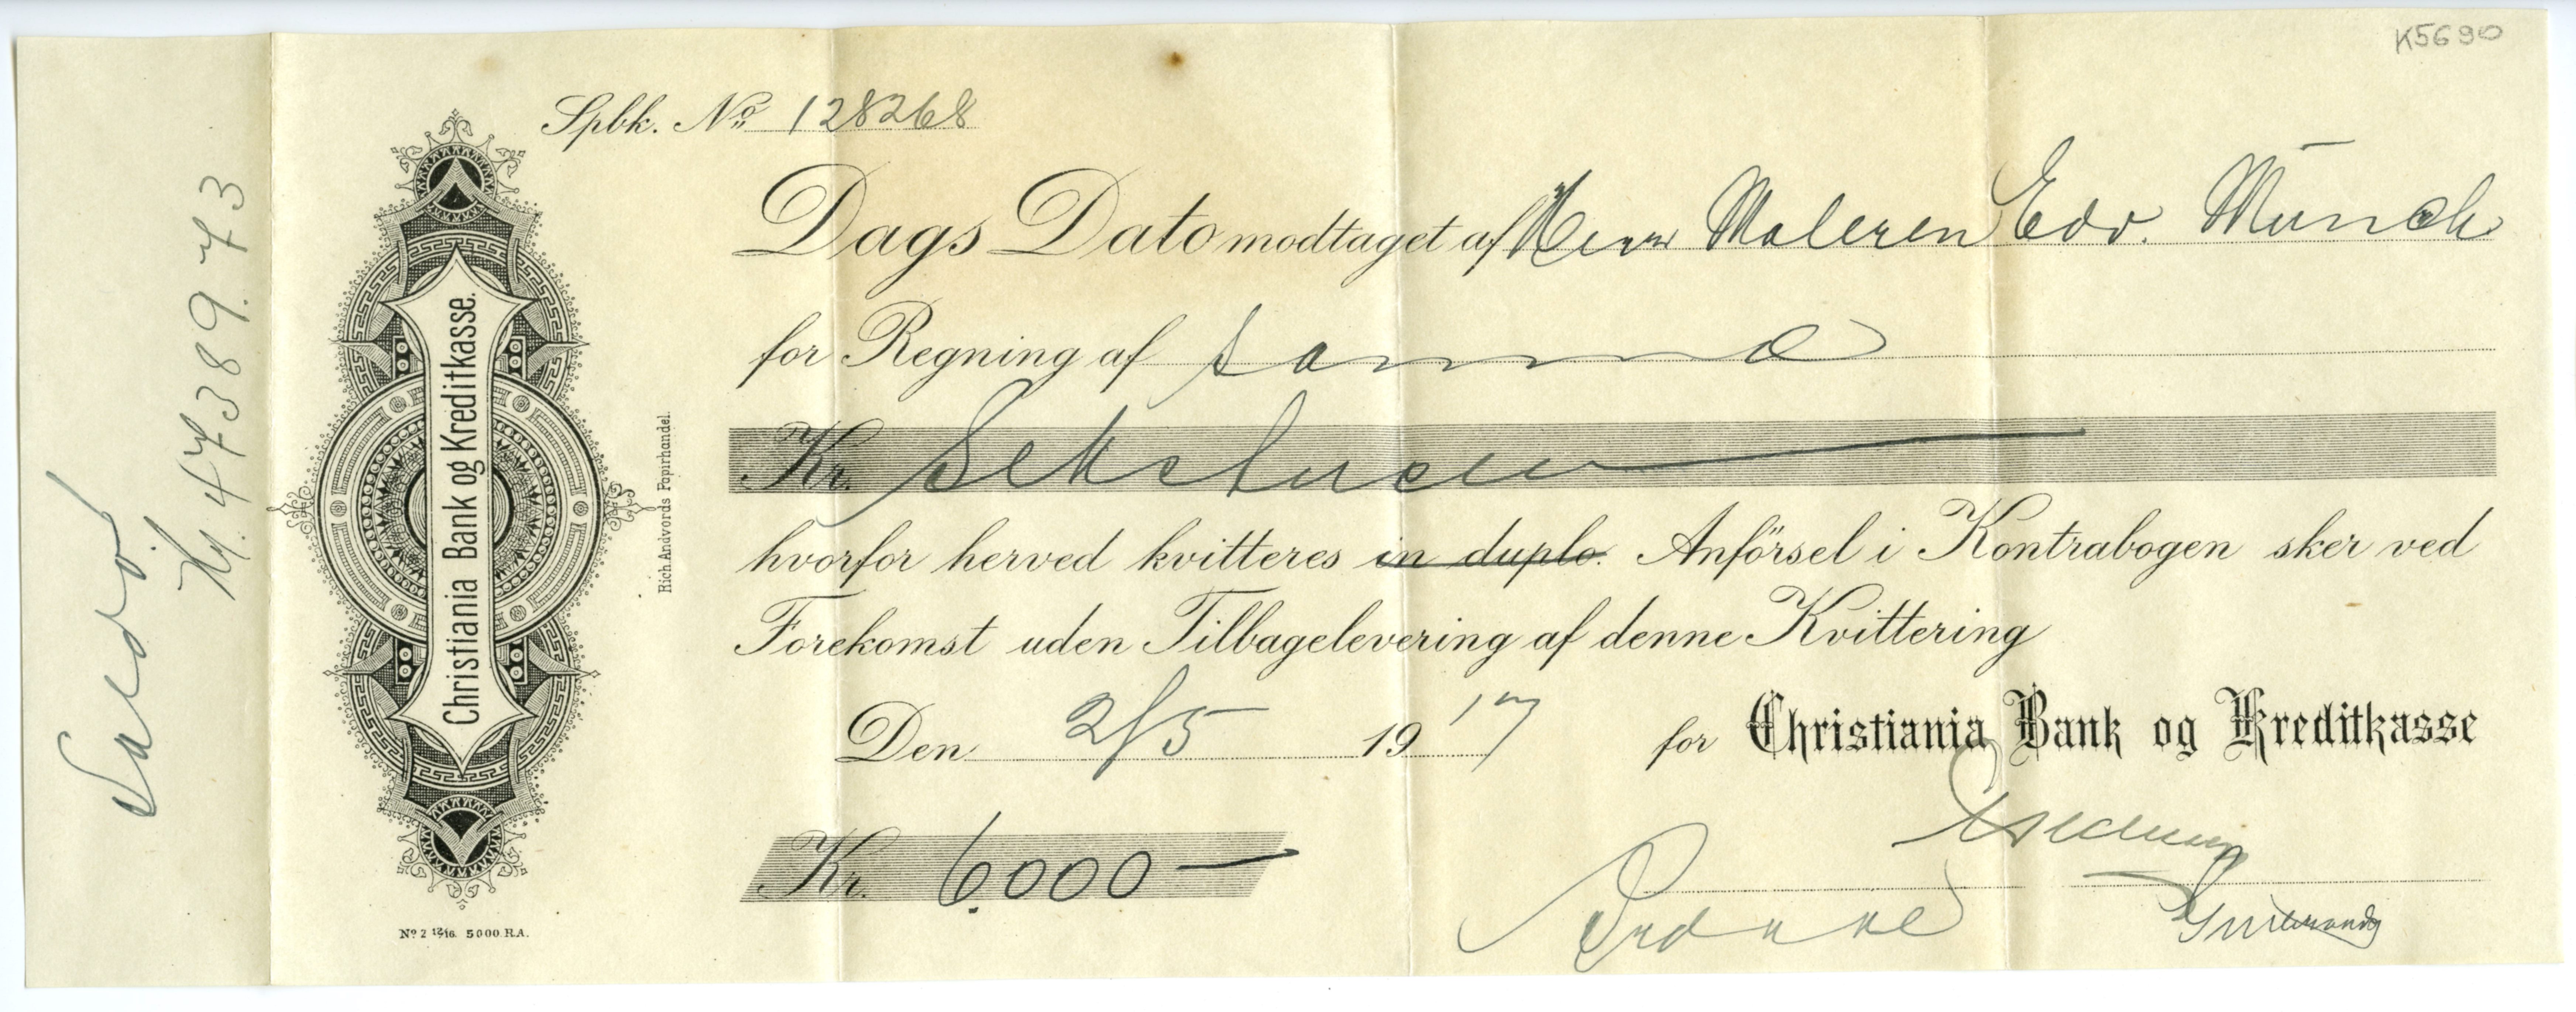 K5690
Spbk. No 128268
Dags Dato modtaget af Herr Maleren Edv. Munch
for Regning af samme
Kr. Sekstusen
hvorfor herved kvitteres in duplo. Anförsel i Kontrabogen sker ved
Forekomst uden Tilbagelevering af denne Kvittering
Den 2/5 1917 for Christiania Bank og Kreditkasse
Kr. 6.000 —
Christiania Bank og Kreditkasse.
Rich. Andvords Papirhandel.
No 2 12/16. 5000. R.A.
Saldo
Kr. 47389.73